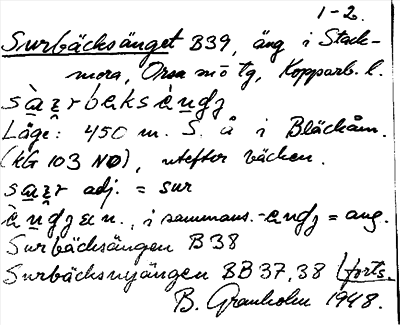 1-2.
Surbäcksänget B39, äng i Stack-
mora, Orsa sn o tg, Kopparb. l.
Läge: 450 m. S. å i Bläckåm.
(kå 103 NO), utefter bäcken.
adj. = sur
n., i sammans. = äng.
Surbäcksängen B38
Surbäcksnyängen BB37,38 forts.
B. Granholm 1948.